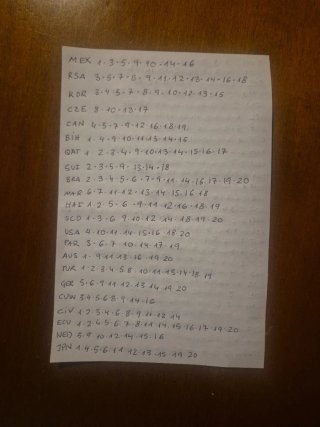 MEX 1·3·5·9·10·14·16
RSA 3·5·7·8·9·11·12·13·14·16·18
KOR 3·4·5·7·8·9·10·12·13·15
CZE 8·10·13·17
CAN 4·5·7·9·12·16·18·19
BIH 1 4·9·10·11·13·14·15
QAT 1 2·3·4·9·10·13·14·15·16·17
SUI 2·3·5·9·13·14·18
BRA 2·3·4·5·6·7·9·11·14·16·17·19·20
MAR 6·7·11·12·13·14·15·16·18
HAI 1·2·5·6·9·11·12·16·18·19
SCO 1·3·6·9·10·12·14·18·19·20
USA 4·10·11·14·15·16·18·20
PAR 3·6·7·10·14·17·19
AUS 1·9·11·13·16·19·20
TUR 1 2 3 4 5 8 10·11·13·14·18 19
GER 5·6·9·11·12·13·14·19·20
CUW 3·4·5·6·8·9·14·16
CIV 1·2·3·4·6·8·9·11·12·14
ECU 1·2·4·5·6·7·8·11·14·15·16·17·19·20
NED 5·9·10·12·14·15·16
JPN 1·4·5·6·11·12·13·15·19·20